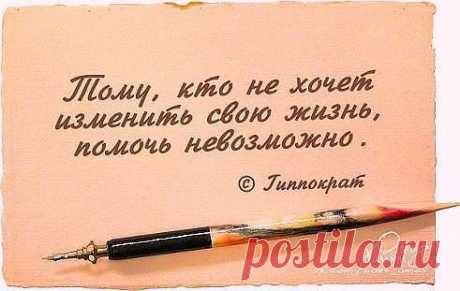 Тому, кто не хочет
изменить свою жизнь,
помочь невозможно.
© Гиппократ
postila.ru